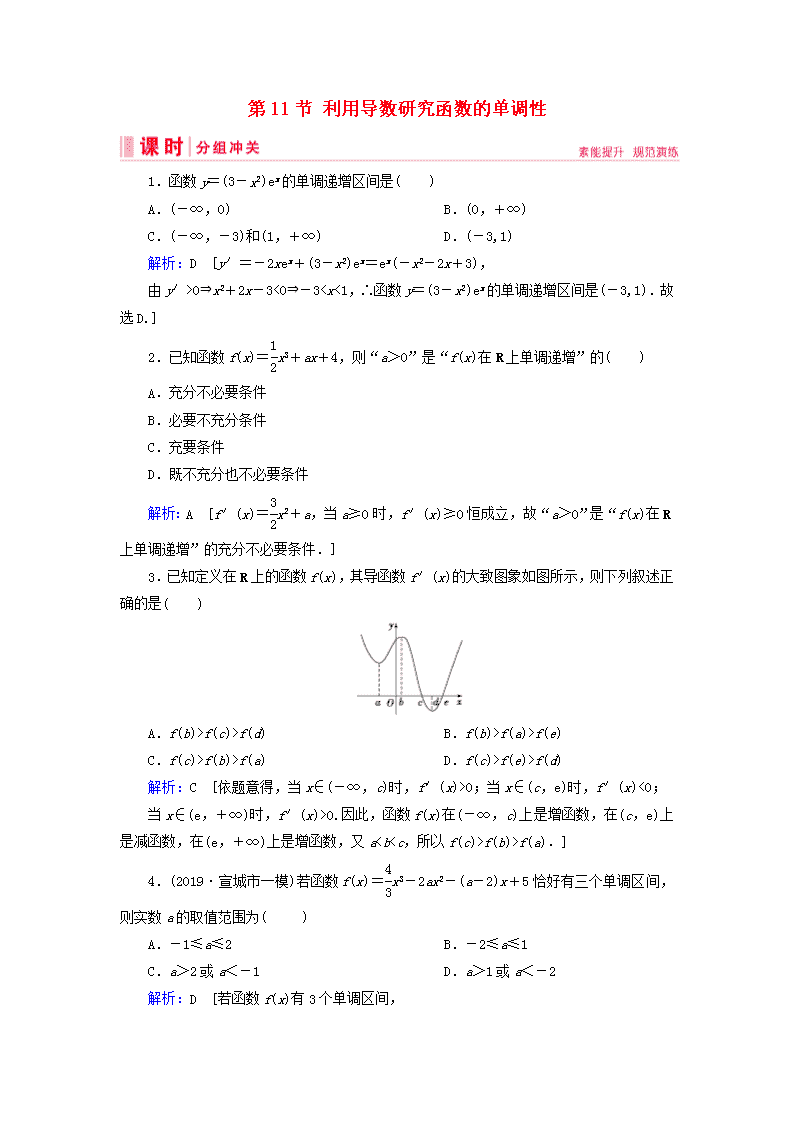 第11节 利用导数研究函数的单调性
课时 分组冲关 素能提升 规范演练
1．函数y＝(3－x²)eˣ的单调递增区间是( )
A．(－∞，0) B．(0，＋∞)
C．(－∞，－3)和(1，＋∞) D．(－3,1)
解析：D [y′＝－2xeˣ＋(3－x²)eˣ＝eˣ(－x²－2x＋3)，
由y′>0⇒x²＋2x－3<0⇒－3<x<1，∴函数y＝(3－x²)eˣ的单调递增区间是(－3,1)．故
选D.]
2．已知函数f(x)＝1/2x³＋ax＋4，则“a＞0”是“f(x)在R上单调递增”的( )
A．充分不必要条件
B．必要不充分条件
C．充要条件
D．既不充分也不必要条件
解析：A [f′(x)＝3/2x²＋a，当a≥0时，f′(x)≥0恒成立，故“a＞0”是“f(x)在R
上单调递增”的充分不必要条件．]
3．已知定义在R上的函数f(x)，其导函数f′(x)的大致图象如图所示，则下列叙述正
确的是( )
y
a O b c d e x
A．f(b)>f(c)>f(d) B．f(b)>f(a)>f(e)
C．f(c)>f(b)>f(a) D．f(c)>f(e)>f(d)
解析：C [依题意得，当x∈(－∞，c)时，f′(x)>0；当x∈(c，e)时，f′(x)<0；
当x∈(e，＋∞)时，f′(x)>0.因此，函数f(x)在(－∞，c)上是增函数，在(c，e)上
是减函数，在(e，＋∞)上是增函数，又a<b<c，所以f(c)>f(b)>f(a)．]
4．(2019·宣城市一模)若函数f(x)＝4/3x³－2ax²－(a－2)x＋5恰好有三个单调区间，
则实数a的取值范围为( )
A．－1≤a≤2 B．－2≤a≤1
C．a＞2或a＜－1 D．a＞1或a＜－2
解析：D [若函数f(x)有3个单调区间，